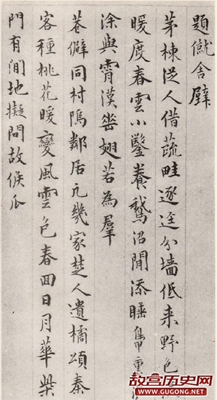 題僦舍壁
茅棟從人借蔬畦逐逕分墻低来野色
暖度春雲小鑿養鵝沼閒添睡
與霄漢翅若為羣
巷僻同村隖鄰居凢幾家楚人遺橘頌秦
客種桃花暖變風雲色春回日月華柴
門有閒地擬問故侯瓜
故宫历史网